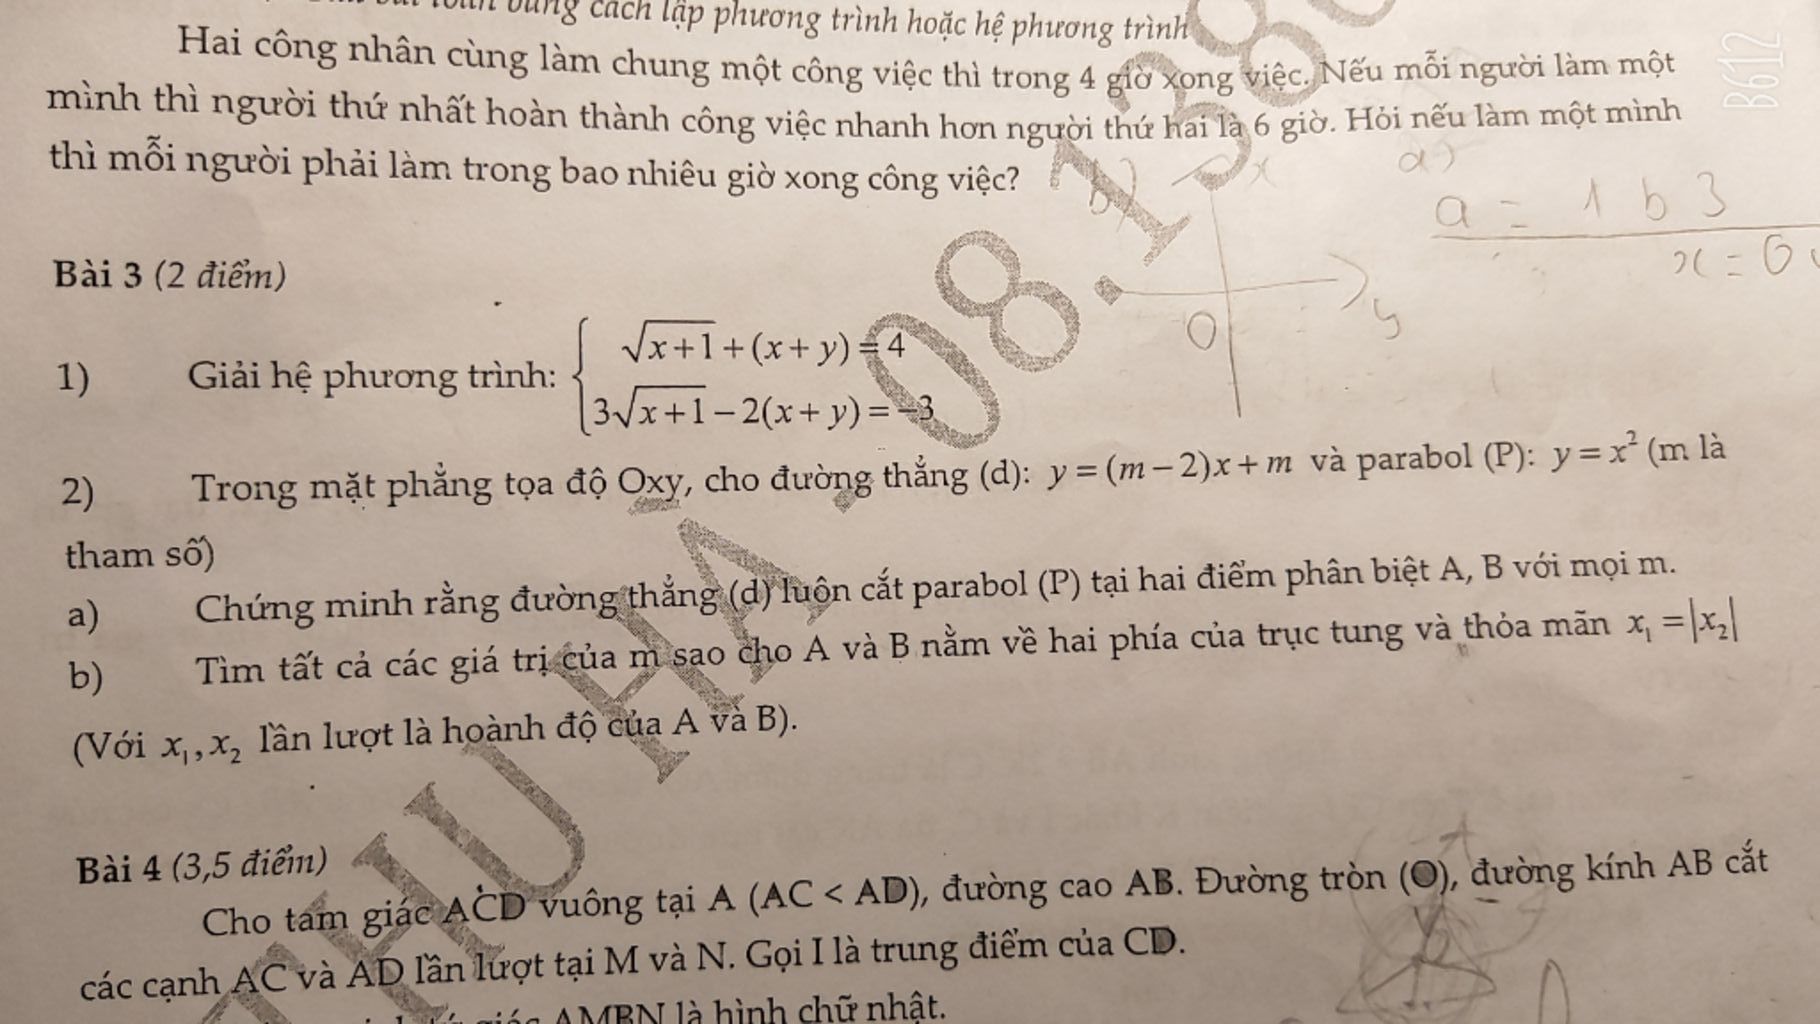 cách lập phương trình hoặc hệ phương trình
Hai công nhân cùng làm chung một công việc thì trong 4 giờ xong việc. Nếu mỗi người làm một
mình thì người thứ nhất hoàn thành công việc nhanh hơn người thứ hai là 6 giờ. Hỏi nếu làm một mình
thì mỗi người phải làm trong bao nhiêu giờ xong công việc?
B612
b) x
a)
a = 1 b 3
x = 6
O y
Bài 3 (2 điểm)
1) Giải hệ phương trình: { √(x+1) + (x + y) = 4
3√(x+1) − 2(x + y) = −3
2) Trong mặt phẳng tọa độ Oxy, cho đường thẳng (d): y = (m − 2)x + m và parabol (P): y = x² (m là
tham số)
a) Chứng minh rằng đường thẳng (d) luôn cắt parabol (P) tại hai điểm phân biệt A, B với mọi m.
b) Tìm tất cả các giá trị của m sao cho A và B nằm về hai phía của trục tung và thỏa mãn x₁ = |x₂|
(Với x₁, x₂ lần lượt là hoành độ của A và B).
Bài 4 (3,5 điểm)
Cho tam giác ACD vuông tại A (AC < AD), đường cao AB. Đường tròn (O), đường kính AB cắt
các cạnh AC và AD lần lượt tại M và N. Gọi I là trung điểm của CD.
giác AMBN là hình chữ nhật.
THU HÀ.08.138